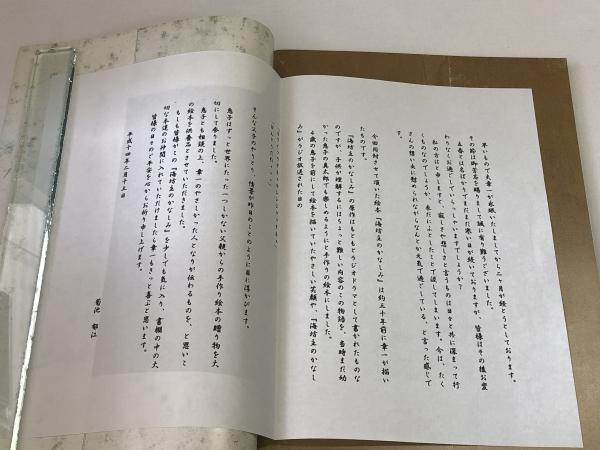 早いもので夫幸一が永眠いたしましてから二ヶ月が経とうとしております。
その節は御芳志を賜りまして誠に有り難うございました。
立春とはなばかりでまだまだ寒い日が続いておりますが、皆様はその後お変
わりなくお過ごしでいらっしゃいますでしょうか？
私の方はと申しますと、寂しさや悲しさと言うものは日々と共に深まって行
くものなのでしょうか、未だにふとしたことで涙してしまいます。今は、たく
さんの想い出に慰められながらなんとか元気で過ごしている、と言った感じで
す。
今回同封させて頂いた絵本「海坊主のかなしみ」は約三十年前に幸一が描い
たものです。
「海坊主のかなしみ」の原作はもともとラジオドラマとして書かれたものな
のですが、子供が理解するにはちょっと難しい内容のこの物語を、当時まだ幼
かった息子の真太郎でも楽しめるようにと手作りの絵本にしました。
４歳の息子を前にして絵本を描いていたやさしい笑顔や、「海坊主のかなし
み」がラジオ放送された日の
そんな父子のやりとり、情景が昨日のことのように目に浮かびます。
息子はずっと世界にたった一つしかない父親からの手作り絵本の贈り物を大
切にして参りました。
息子とも相談の上、幸一のやさしかった人となりが伝わるものを、と思いこ
の絵本を供養品とさせていただきました。
もしも皆様がこの「海坊主のかなしみ」を少しでも気に入り、書棚の中の大
切な本達のお仲間に入れていただけましたら幸一もきっと喜ぶと思います。
皆様の日々のご多安を心からお祈り申し上げます。
平成十四年二月十三日
菊池 郁江